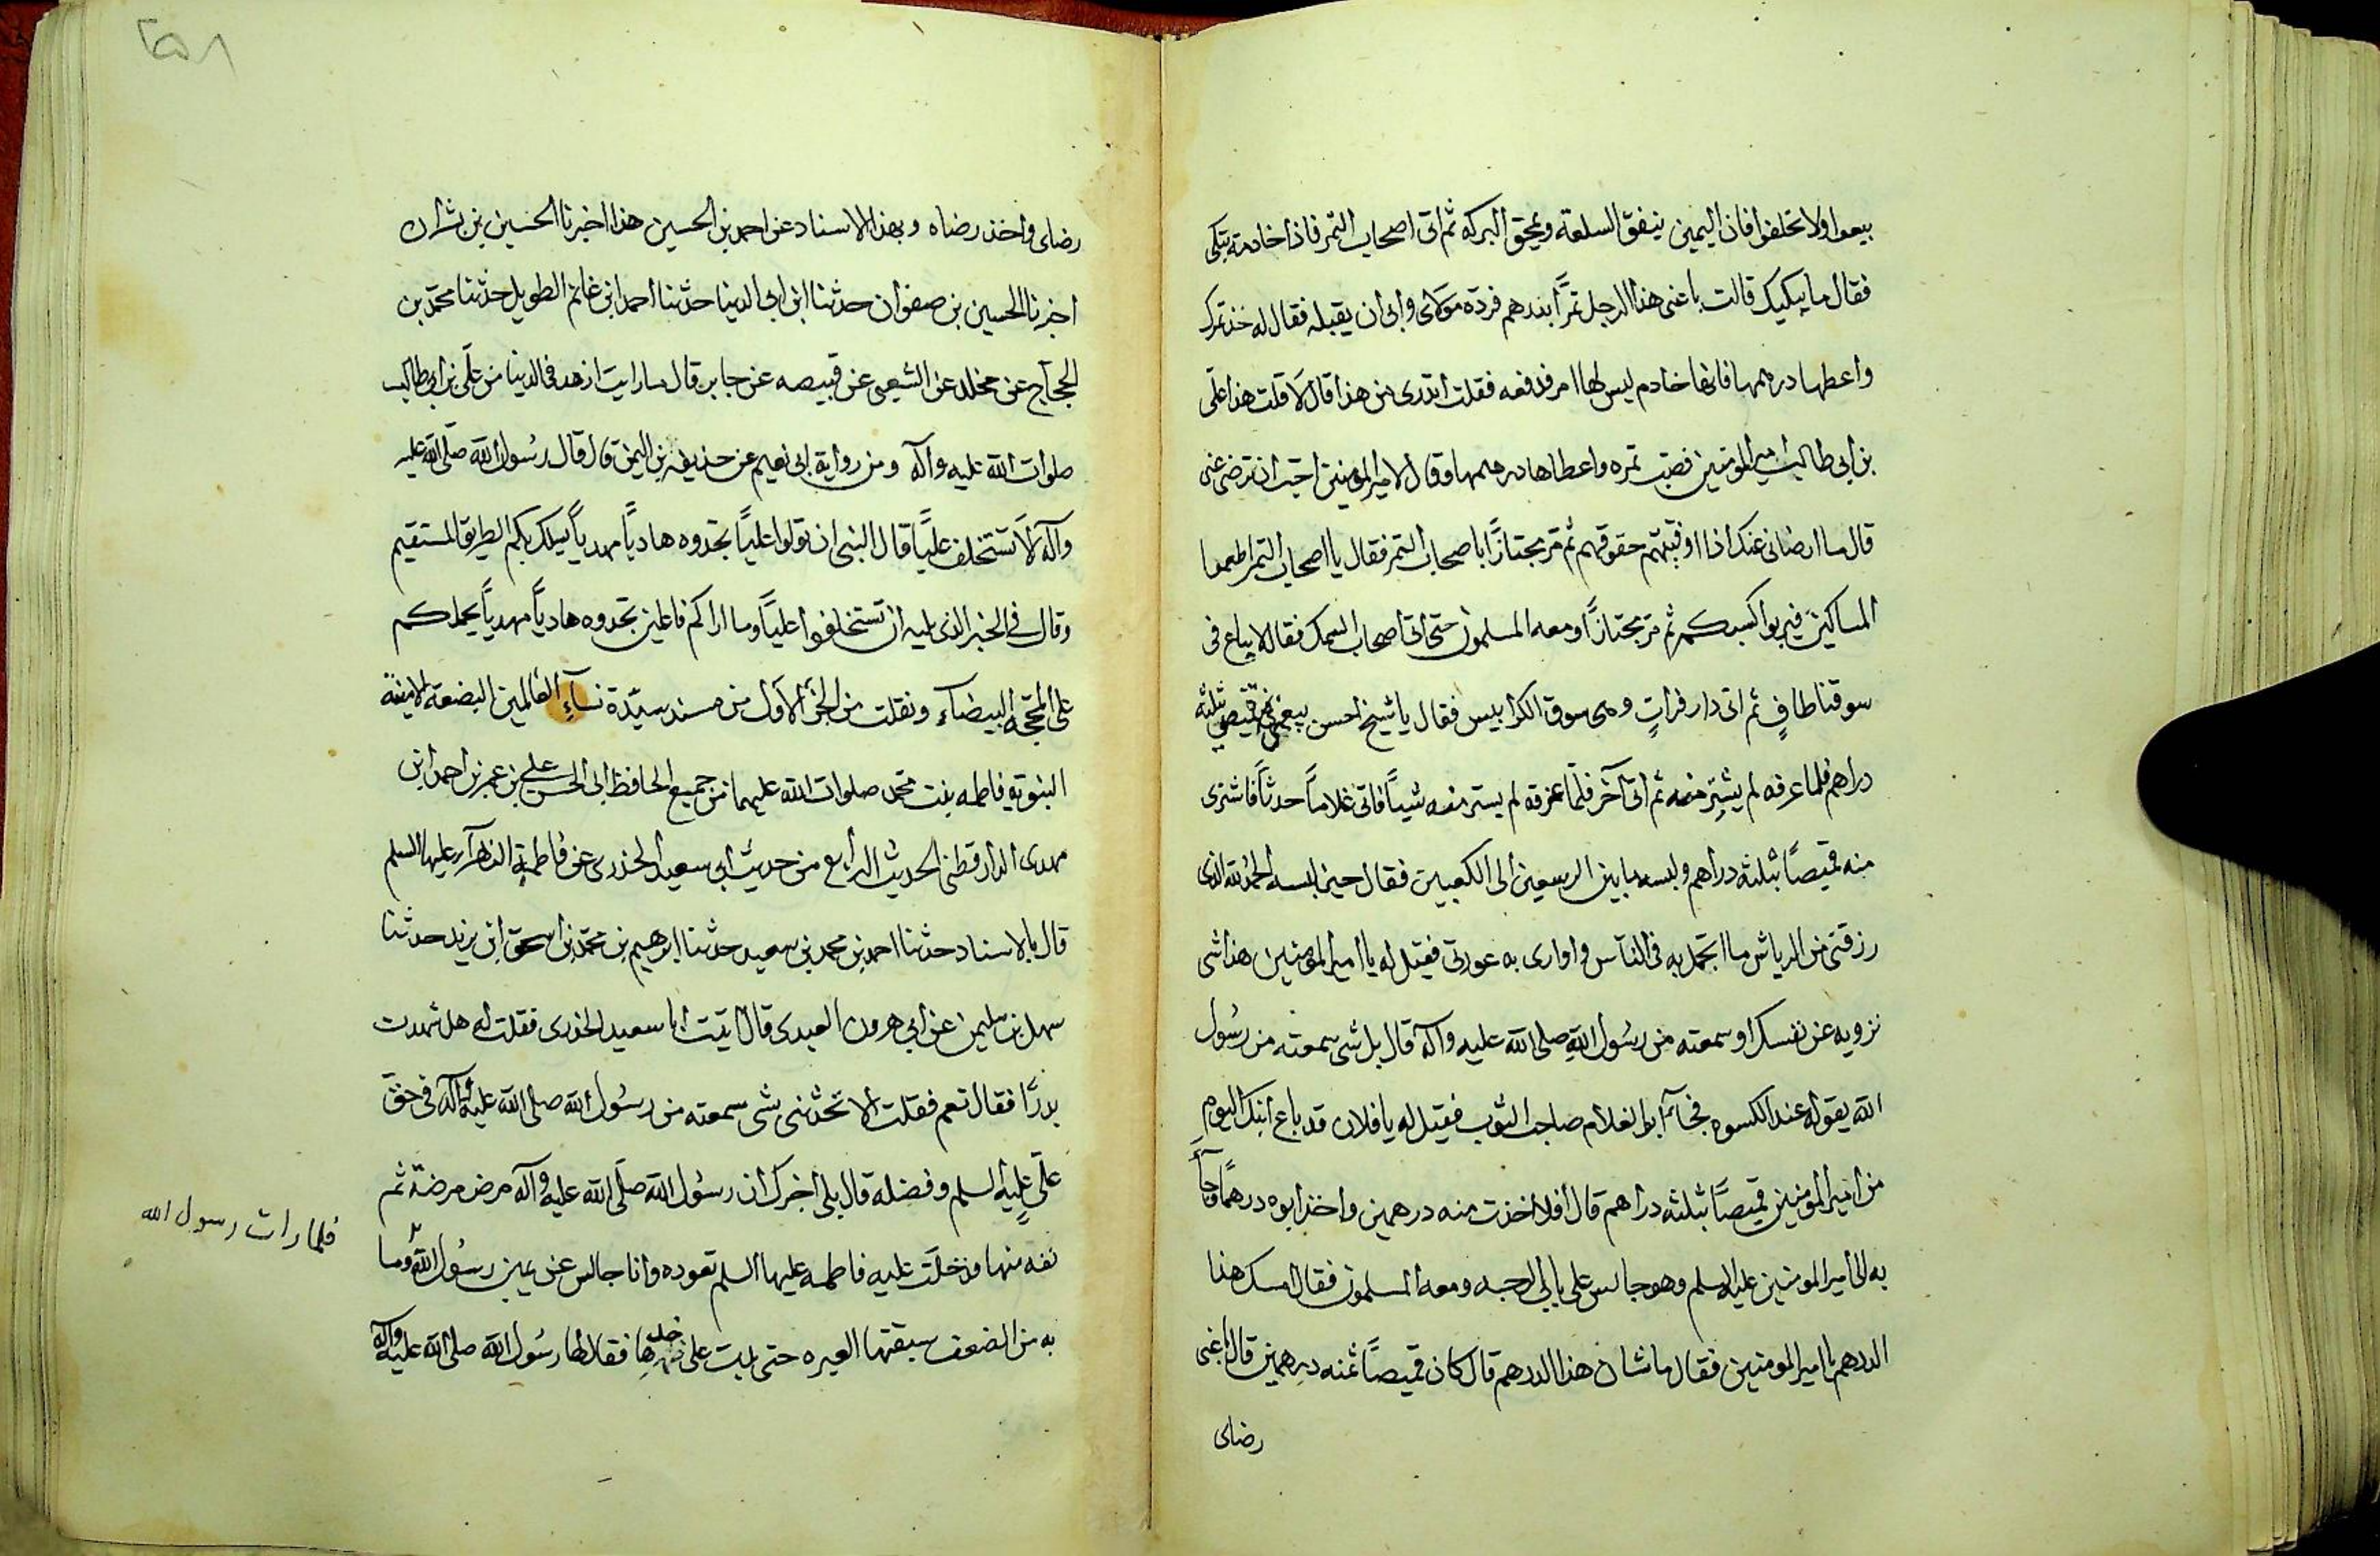 بيعوا ولا تحلفوا فان اليمين ينفق السلعة ويمحق البركه ثم اتى اصحاب التمر فاذا خادمة تبكى
فقال ما يبكيك قالت باعنى هذا الرجل تمرًا بدرهم فرده مولاى وابى ان يقبله فقال له خذ تمرك
واعطها درهمها فانها خادم ليس لها امر فدفعه فقلت اتدرى من هذا قال لا قلت هذا على
بن ابى طالب امير المومنين فصب تمره واعطاها درهمها وقال لامير المومنين احب ان ترضى عنى
قال ما ارضانى عنك اذا اوفيتهم حقوقهم ثم مر مجتازًا باصحاب التمر فقال يا اصحاب التمر اطعموا
المساكين فيربوا كسبكم ثم مر مجتازًا ومعه المسلمون حتى اتى اصحاب السمك فقال لا يباع فى
سوقنا طافٍ ثم اتى دار فراتٍ وهى سوق الكرابيس فقال يا شيخ احسن بيعى فى قميصى بثلثة
دراهم فلما عرفه لم يشتر منه ثم اتى آخر فلما عرفه لم يشتر منه شيئًا فاتى غلامًا حدثًا فاشترى
منه قميصًا بثلثة دراهم ولبسه ما بين الرسغين الى الكعبين فقال حين لبسه الحمد لله الذى
رزقنى من الرياش ما اتجمل به فى الناس و اوارى به عورتى فقيل له يا امير المومنين هذا شى
تزويه عن نفسك او سمعته من رسول الله صلى الله عليه وآله قال بل شى سمعته من رسول
الله يقوله عند الكسوه فجآء ابو الغلام صاحب الثوب فقيل له يا فلان قد باع ابنك اليوم
من امير المومنين قميصًا بثلثة دراهم قال أفلا اخذت منه درهمين واخذ ابوه درهمًا وجآء
به الى امير المومنين عليه السلم وهو جالس على باب الرحبه ومعه المسلمون فقال امسك هذا
الدرهم يا امير المومنين فقال ما شان هذا الدرهم قال كان قميصًا ثمنه درهمين قال باعنى
رضاى
٢٥٨
رضاى واخذ رضاه وبهذا الاسناد عن احمد بن الحسين هذا اخبرنا الحسين بن بشران
اخبرنا الحسين بن صفوان حدثنا ابن ابى الدينا حدثنا احمد ابن غانم الطويل حدثنا محمد بن
الحجاج عن مخلد عن الشعبى عن قبيصه عن جابر قال ما رايت ازهد فى الدنيا من على بن ابى طالب
صلوات الله عليه وآله ومن رواية ابى نعيم عن حذيفه بن اليمن قال قال رسول الله صلى الله عليه
وآله لا تستخلف عليًا قال النبى ان تولوا عليًا تجدوه هاديًا مهديًا يسلك بكم الطريق المستقيم
وقال فى الخبر الذى يليه ان تستخلفوا عليًا وما اراكم فاعلين تجدوه هاديًا مهديًا يحملكم
على المحجة البيضآء ونقلت من الجزء الاول من مسند سيدة نسآء العالمين البضعة الامينة
النبويه فاطمه بنت محمد صلوات الله عليهما من جميع الحافظ ابى الحسن على بن عمر بن احمد ابن
مهدى الدارقطنى الحديث الرابع من حديث ابى سعيد الخدرى عن فاطمة الزهرآء عليها السلم
قال بالاسناد حدثنا احمد بن محمد بن سعيد حدثنا ابرهيم بن محمد بن اسحق ابن يزيد حدثنا
سهل بن سليمن عن ابى هرون العبدى قال اتيت ابا سعيد الخدرى فقلت له هل شهدت
بدرًا فقال نعم فقلت الا تحدثنى بشى سمعته من رسول الله صلى الله عليه وآله فى حق
على عليه السلم وفضله قال بلى اخبرك ان رسول الله صلى الله عليه وآله مرض مرضة ثم
نقه منها فدخلت عليه فاطمه عليها السلم تعوده وانا جالس عن يمين رسول الله وما
به من الضعف سبقتها العبره حتى بدت على خدها فقال لها رسول الله صلى الله عليه وآله
فلما رات رسول الله